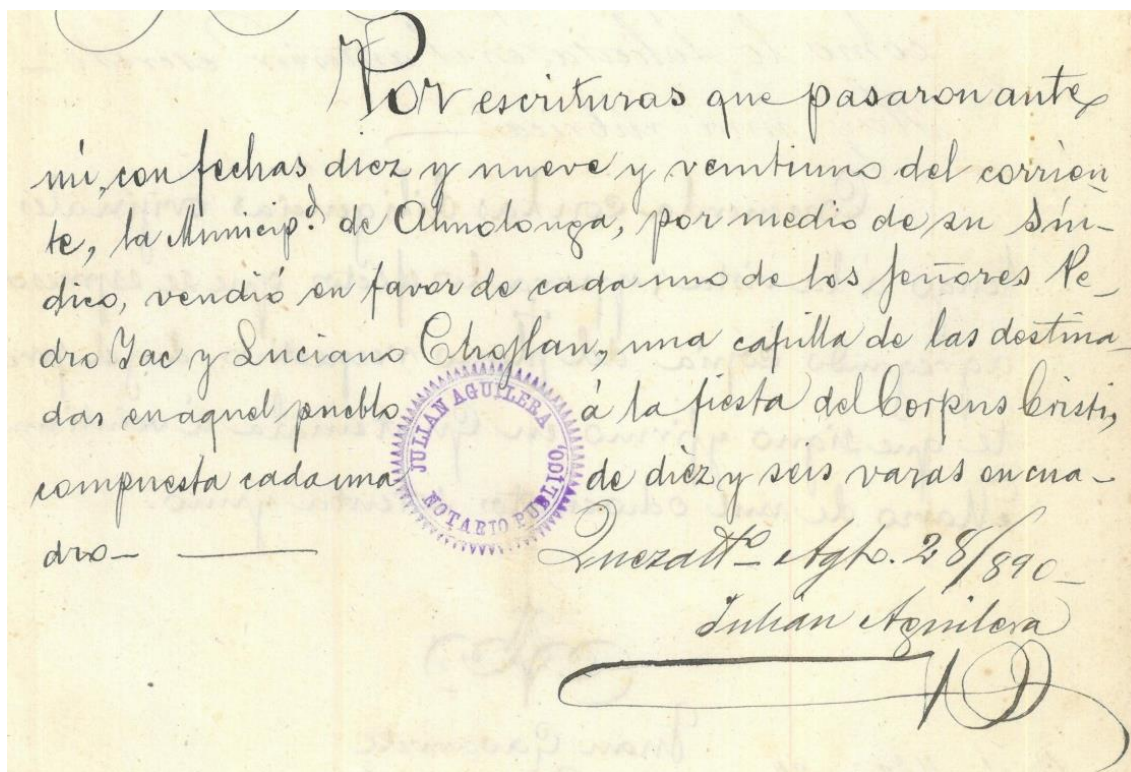 Por escrituras que pasaron ante
mí, con fechas diez y nueve y veintiuno del corrien-
te, la Municip.d de Almolonga, por medio de su Sín-
dico, vendió en favor de cada uno de los señores Pe-
dro Yac y Luciano Chojlan, una capilla de las destina-
das en aquel pueblo á la fiesta del Corpus Cristi,
compuesta cada una de diez y seis varas en cua-
dro-
JULIAN AGUILERA
NOTARIO PUBLICO.
Quezalt.o Agto. 28/890-
Julián Aguilera